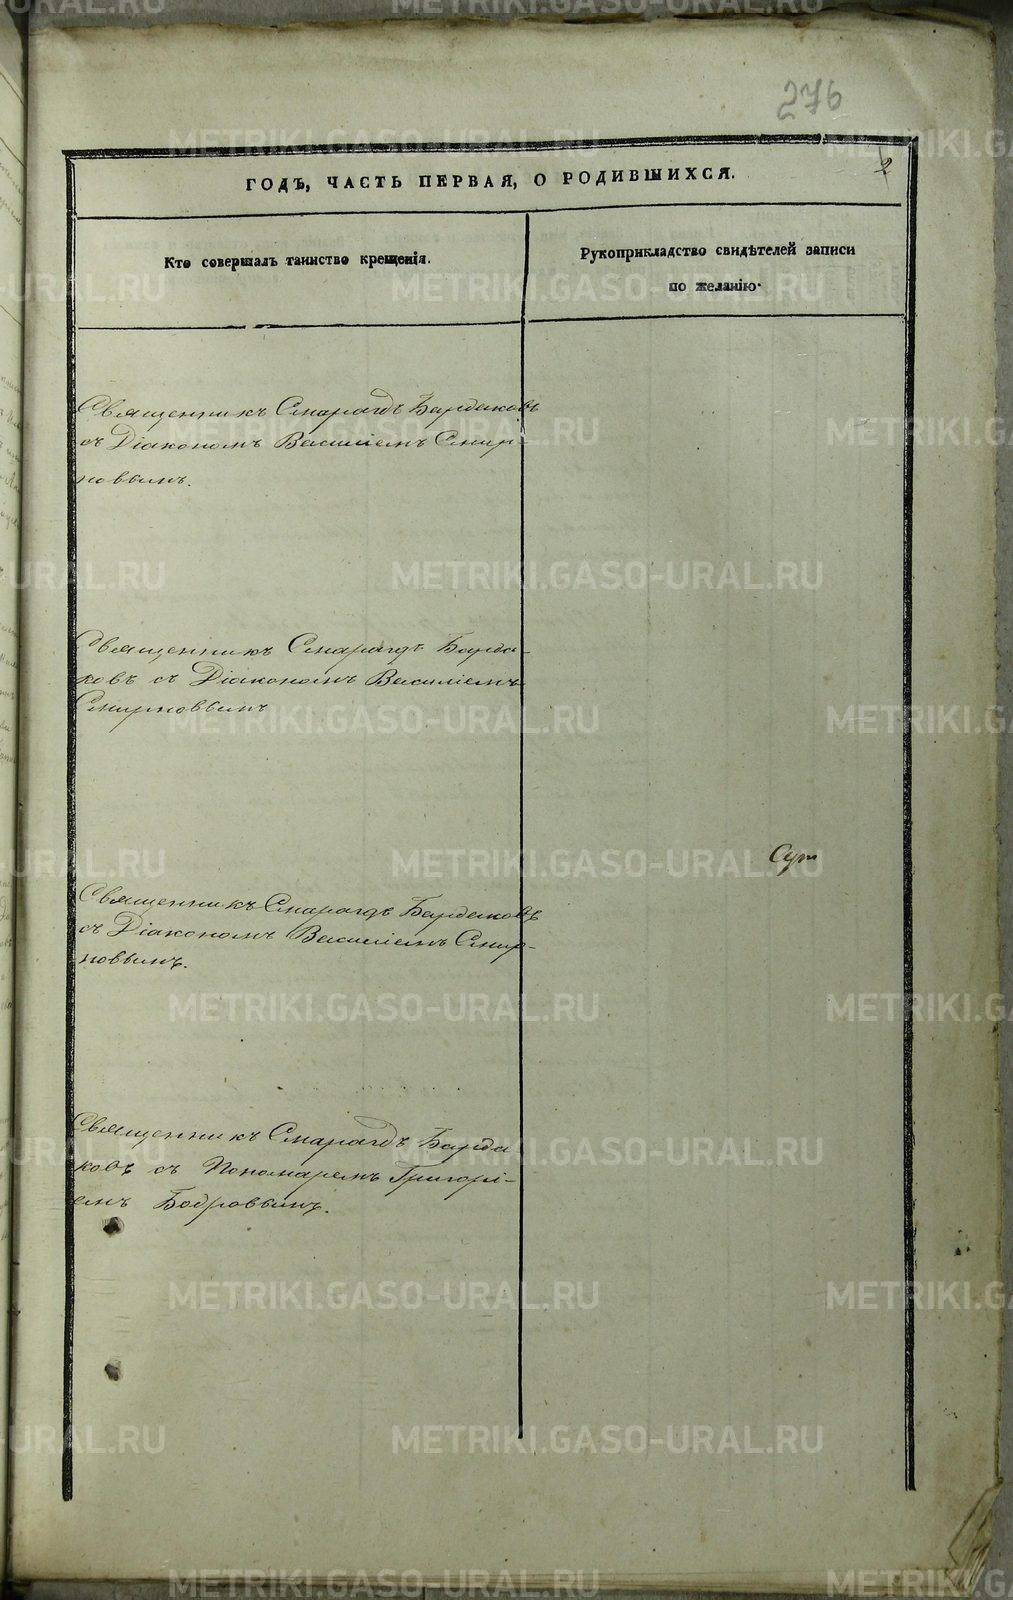 276
2
ГОДЪ, ЧАСТЬ ПЕРВАЯ, О РОДИВШИХСЯ.
Кто совершалъ таинство крещенія.
Рукоприкладство свидѣтелей записи
по желанію.
Священникъ Смарагдъ Бардаковъ
съ Діакономъ Василіемъ Смир-
новымъ.
Священникъ Смарагдъ Барда-
ковъ съ Діакономъ Василіемъ
Смирновымъ
Сут
Священникъ Смарагдъ Бардаковъ
съ Діакономъ Василіемъ Смир-
новымъ.
Священникъ Смарагдъ Барда
ковъ съ Пономаремъ Григорі-
емъ Бобровымъ.
METRIKI.GASO-URAL.RU